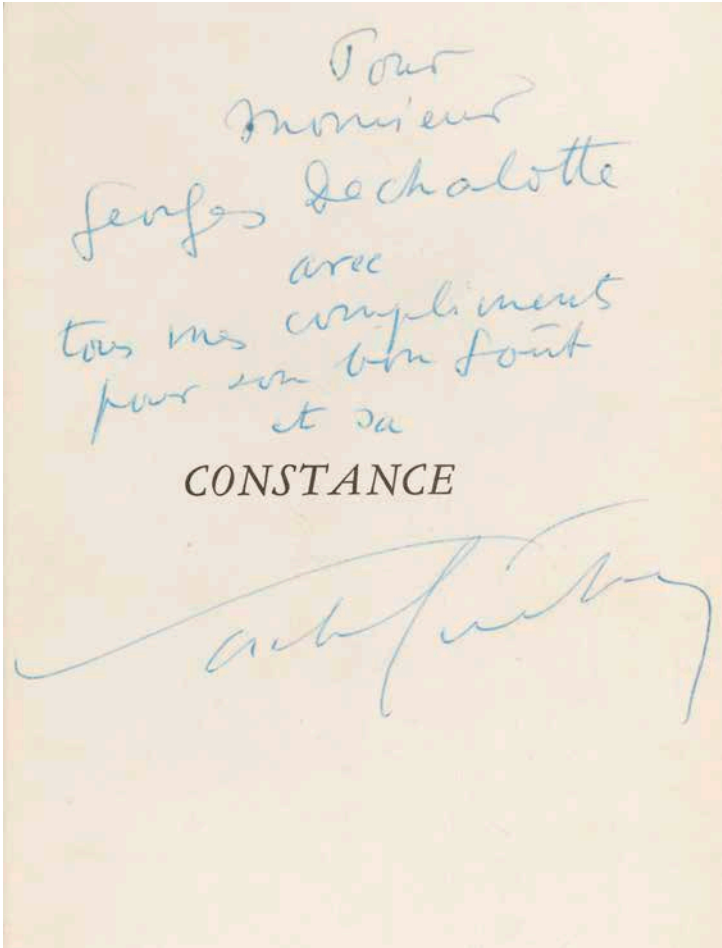 Pour
Monsieur
Georges Dechalotte
avec
tous mes compliments
pour son bon goût
et sa
CONSTANCE
Sacha Guitry